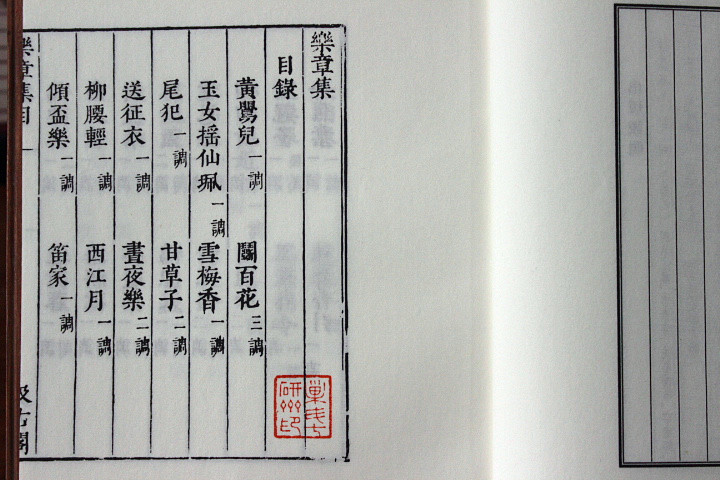 樂章集
目錄
黃鸎兒 一調 鬭百花 三調
玉女揺仙珮 一調 雪梅香 一調
尾犯 一調 甘草子 二調
送征衣 一調 晝夜樂 二調
柳腰輕 一調 西江月 一調
傾盃樂 一調 笛家 一調
樂章集目 一 汲古閣